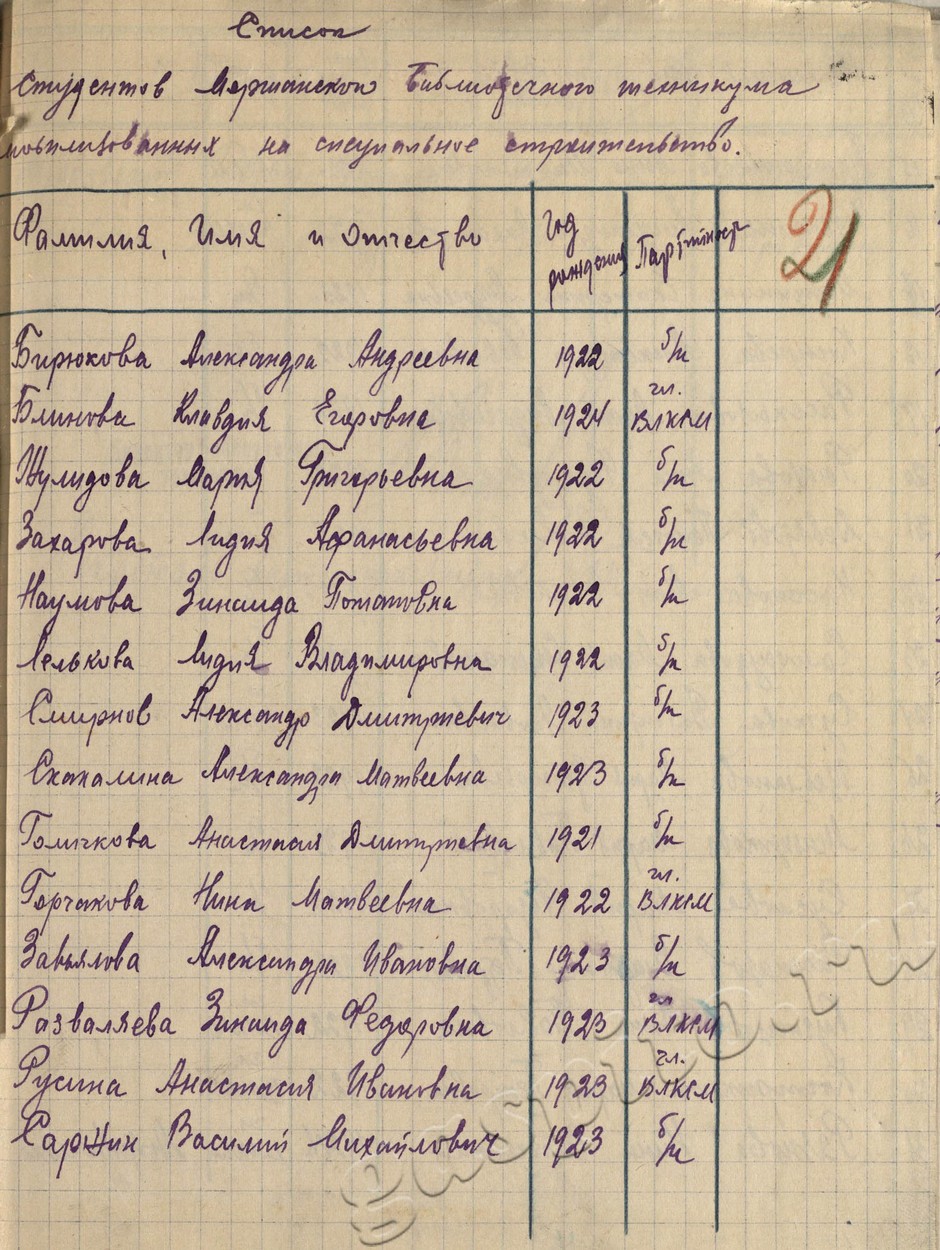 Список
студентов Моршанского библиотечного техникума
мобилизованных на специальное строительство.
Фамилия, Имя и Отчество год рождения Партийность 21
Бирюкова Александра Андреевна 1922 б/п
Блинова Клавдия Егоровна 1924 чл. ВЛКСМ
Жулидова Мария Григорьевна 1922 б/п
Захарова Лидия Афанасьевна 1922 б/п
Наумова Зинаида Потаповна 1922 б/п
Лелькова Лидия Владимировна 1922 б/п
Смирнов Александр Дмитриевич 1923 б/п
Скакалина Александра Матвеевна 1923 б/п
Толичкова Анастасия Дмитриевна 1921 б/п
Горчакова Нина Матвеевна 1922 чл. ВЛКСМ
Завьялова Александра Ивановна 1923 б/п
Разваляева Зинаида Федоровна 1923 чл ВЛКСМ
Русина Анастасия Ивановна 1923 чл. ВЛКСМ
Василий Михайлович 1923 б/п